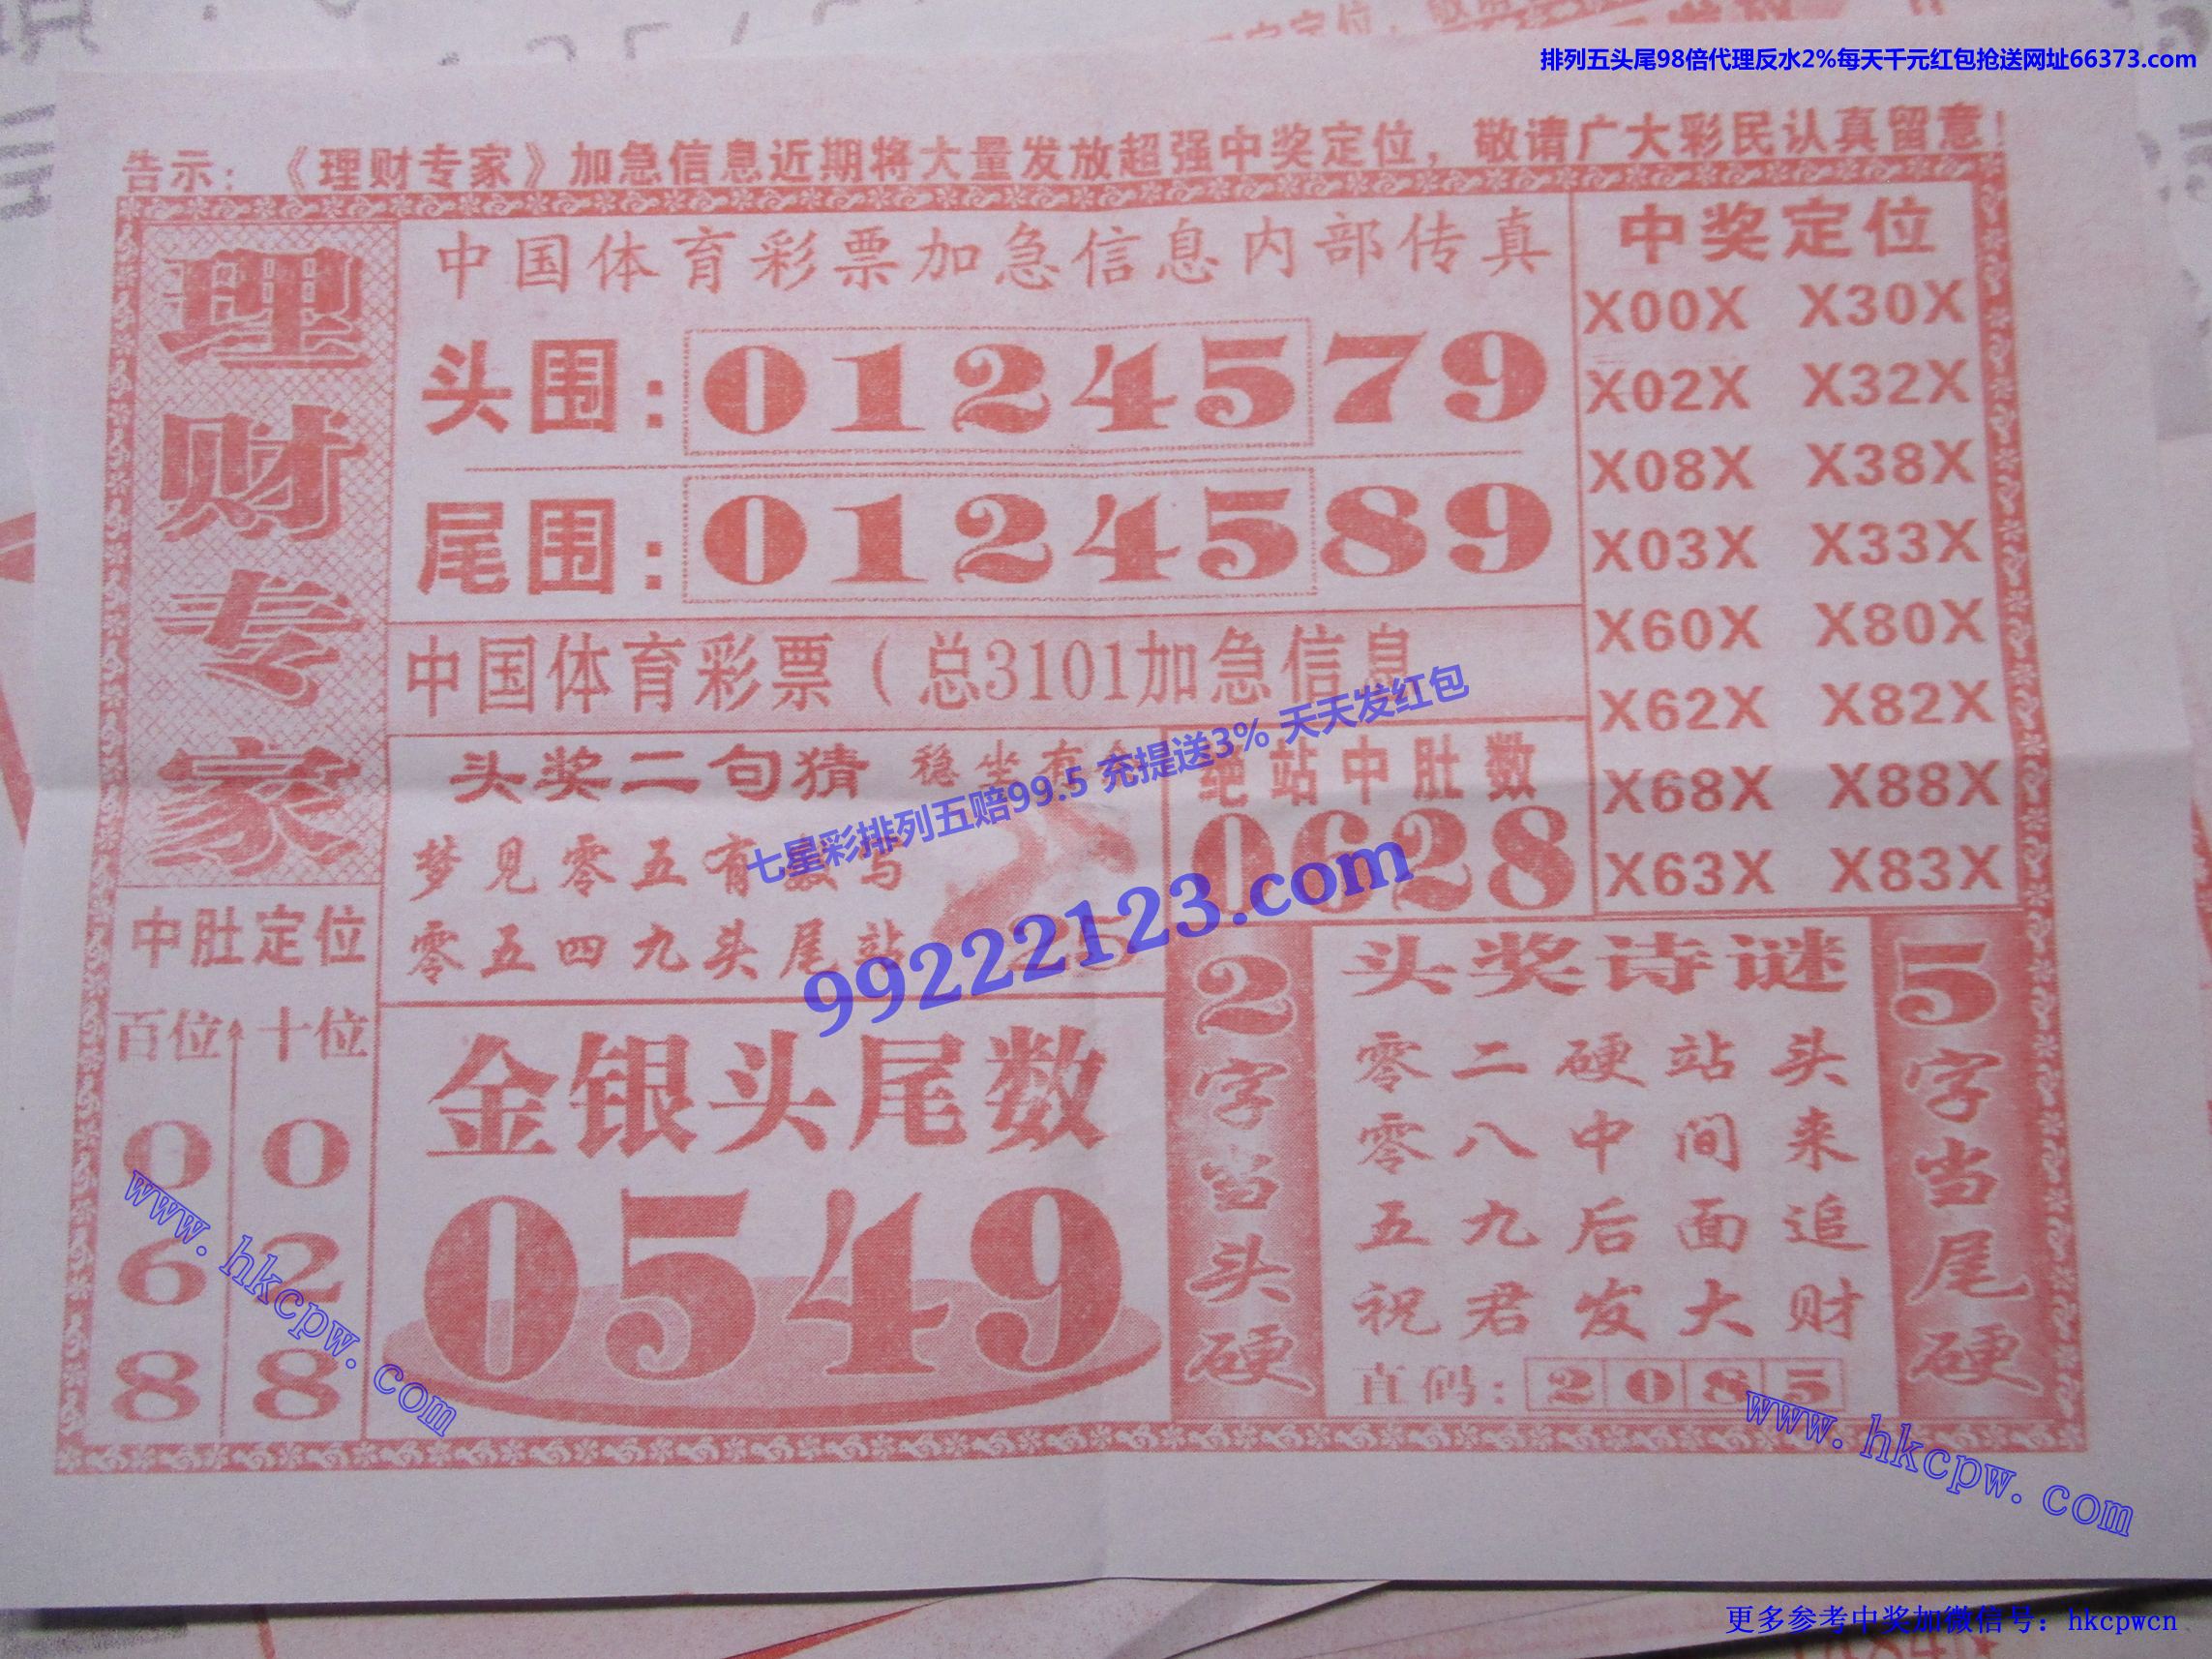 排列五头尾98倍代理反水2%每天千元红包抢送网址66373.com
告示：《理财专家》加急信息近期将大量发放超强中奖定位，敬请广大彩民认真留意！
理财专家
中国体育彩票加急信息内部传真
头围：0124579
尾围：0124589
中奖定位
X00X X30X
X02X X32X
X08X X38X
X03X X33X
X60X X80X
X62X X82X
X68X X88X
X63X X83X
中国体育彩票（总3101加急信息
头奖二句猜 稳坐有
梦见零五有 写
零五四九头尾站
25
绝站中肚数
0628
七星彩排列五赔99.5 充提送3% 天天发红包
99222123.com
中肚定位
百位 十位
0 0
6 2
8 8
金银头尾数
0549
2字当头硬
头奖诗谜
零二硬站头
零八中间来
五九后面追
祝君发大财
直码：2085
5字当尾硬
www.hkcpw.com
www.hkcpw.com
更多参考中奖加微信号：hkcpwcn